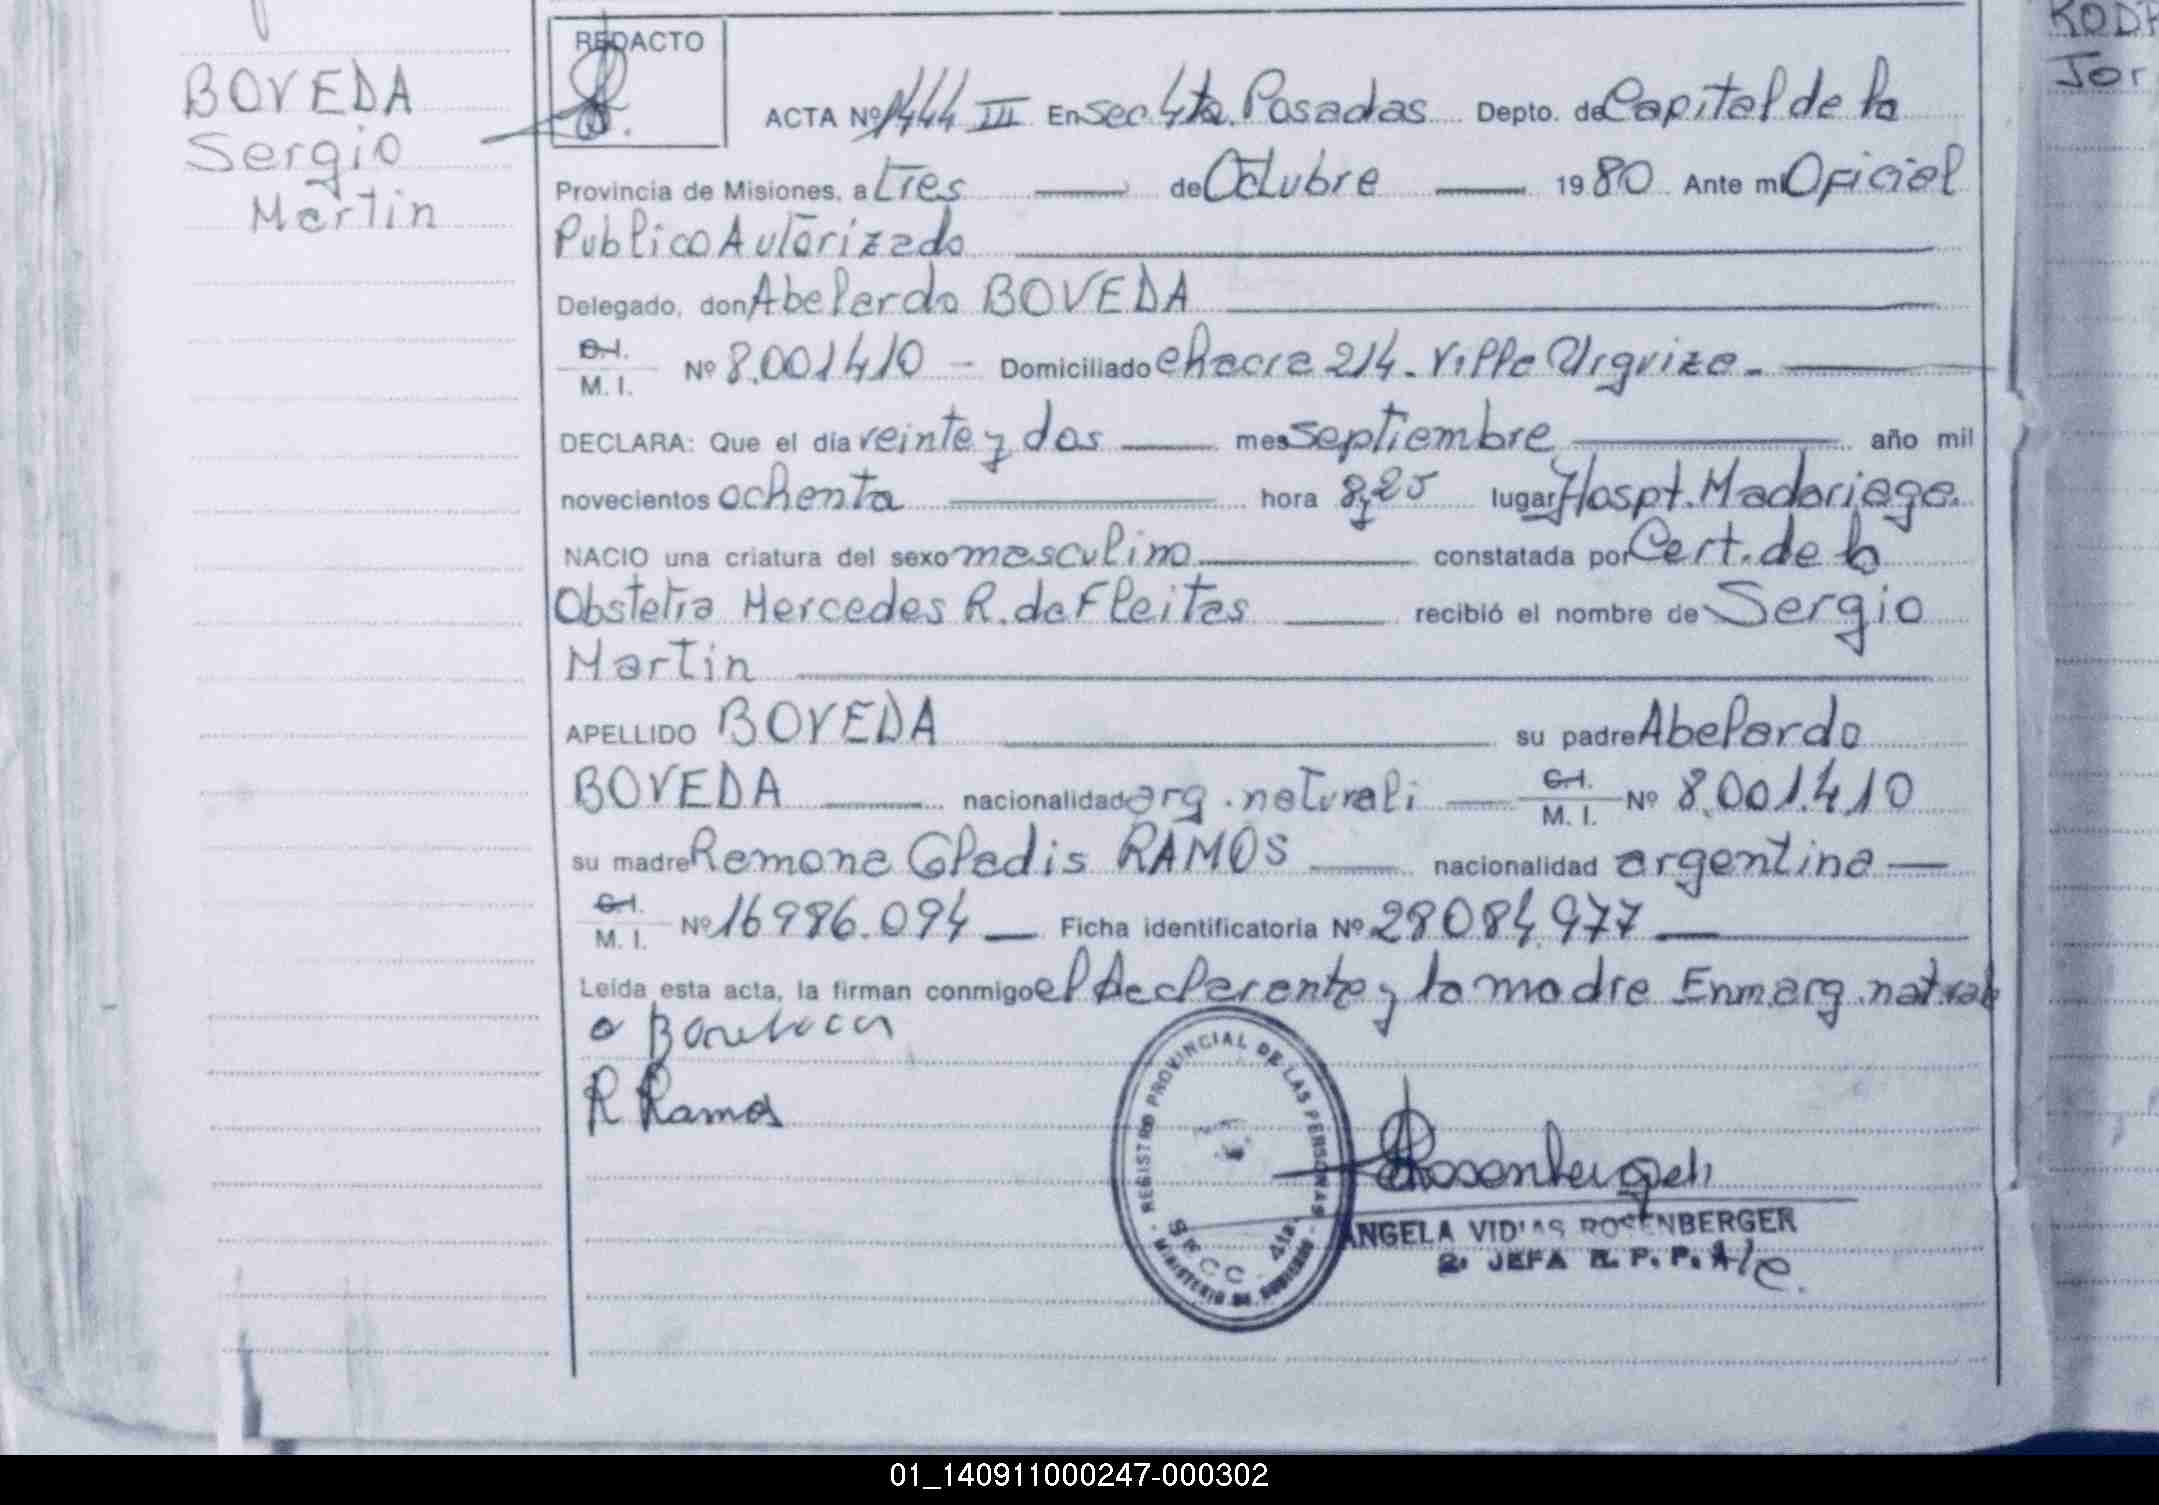 BOVEDA
Sergio
Martin
REDACTO
ACTA Nº 1444 III En Sec 4ta. Posadas Depto. de Capital de la
Provincia de Misiones, a tres de Octubre 1980 Ante mi Oficial
Publico Autorizado
Delegado, don Abelardo BOVEDA
C.I.
M. I. Nº 8.001410 - Domiciliado chacra 214. Villa Urquiza.
DECLARA: Que el día veinte y dos mes septiembre año mil
novecientos ochenta hora 8,25 lugar Hospt. Madariaga.
NACIO una criatura del sexo masculino constatada por Cert. de la
Obstetra Mercedes R. de Fleitas recibió el nombre de Sergio
Martin
APELLIDO BOVEDA su padre Abelardo
BOVEDA nacionalidad arg. naturali C.I. M. I. Nº 8.001.410
su madre Ramona Gladis RAMOS nacionalidad argentina
C.I.
M. I. Nº 16986.094 Ficha identificatoria Nº 28084.977
Leída esta acta, la firman conmigo el declarente y la madre Enm. arg. natural
R Ramos
REGISTRO PROVINCIAL DE LAS PERSONAS
SECC. 4ta.
MINISTERIO DE GOBIERNO
Rosenberger
ANGELA VIDIAS ROSENBERGER
2. JEFA R. P. P. A/c.
RODR
Jor
01_140911000247-000302